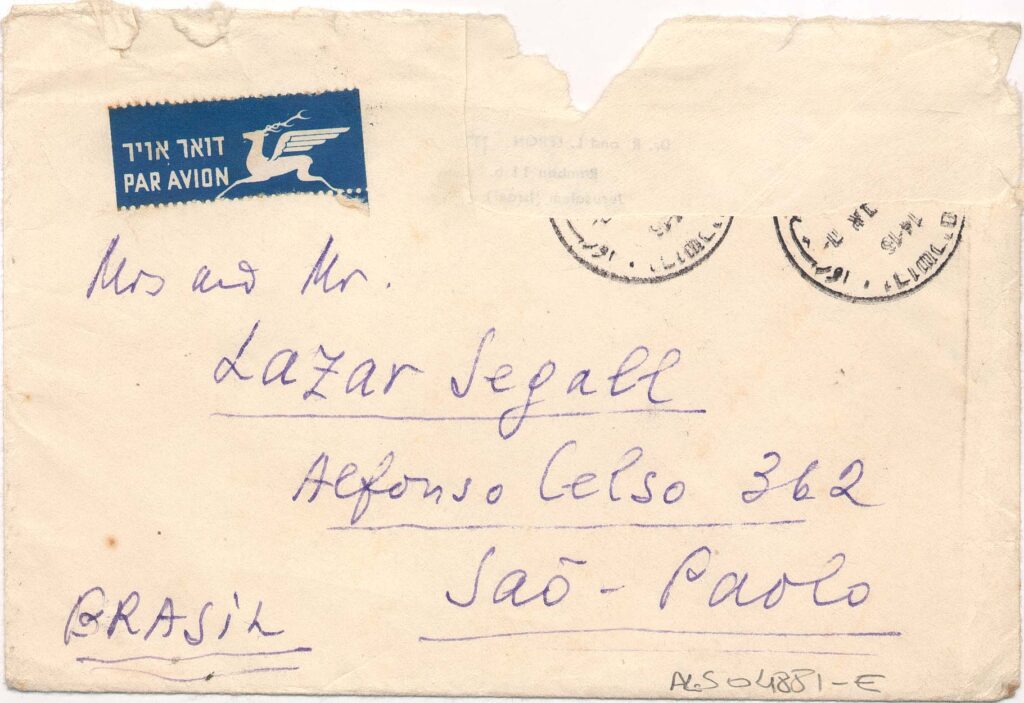 דואר אויר
PAR AVION
Mrs and Mr.
Lazar Segall
Alfonso Celso 362
Saõ - Paolo
BRASiL
ALS 04881-E